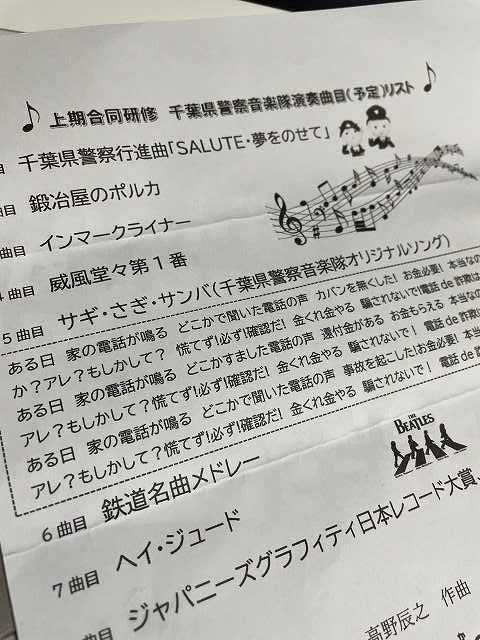 上期合同研修 千葉県警察音楽隊演奏曲目(予定)リスト
曲目 千葉県警察行進曲「SALUTE・夢をのせて」
曲目 鍛冶屋のポルカ
曲目 インマークライナー
曲目 威風堂々第1番
5曲目 サギ・さぎ・サンバ(千葉県警察音楽隊オリジナルソング)
ある日 家の電話が鳴る どこかで聞いた電話の声 カバンを無くした! お金必要! 本当なの
か?アレ?もしかして? 慌てず!必ず!確認だ! 金くれ金やる 騙されないで!電話de詐欺は
ある日 家の電話が鳴る どこかすました電話の声 還付金がある お金もらえる 本当なの
アレ?もしかして?慌てず!必ず!確認だ! 金くれ金やる 騙されないで! 電話de詐欺
ある日 家の電話が鳴る どこかで聞いた電話の声 事故を起こした!お金必要! 本
アレ?もしかして?慌てず!必ず!確認だ! 金くれ金やる 騙されないで! 電話
6曲目 鉄道名曲メドレー
THE BEATLES
7曲目 ヘイ・ジュード
曲目 ジャパニーズグラフィティ日本レコード大賞
高野辰之 作曲